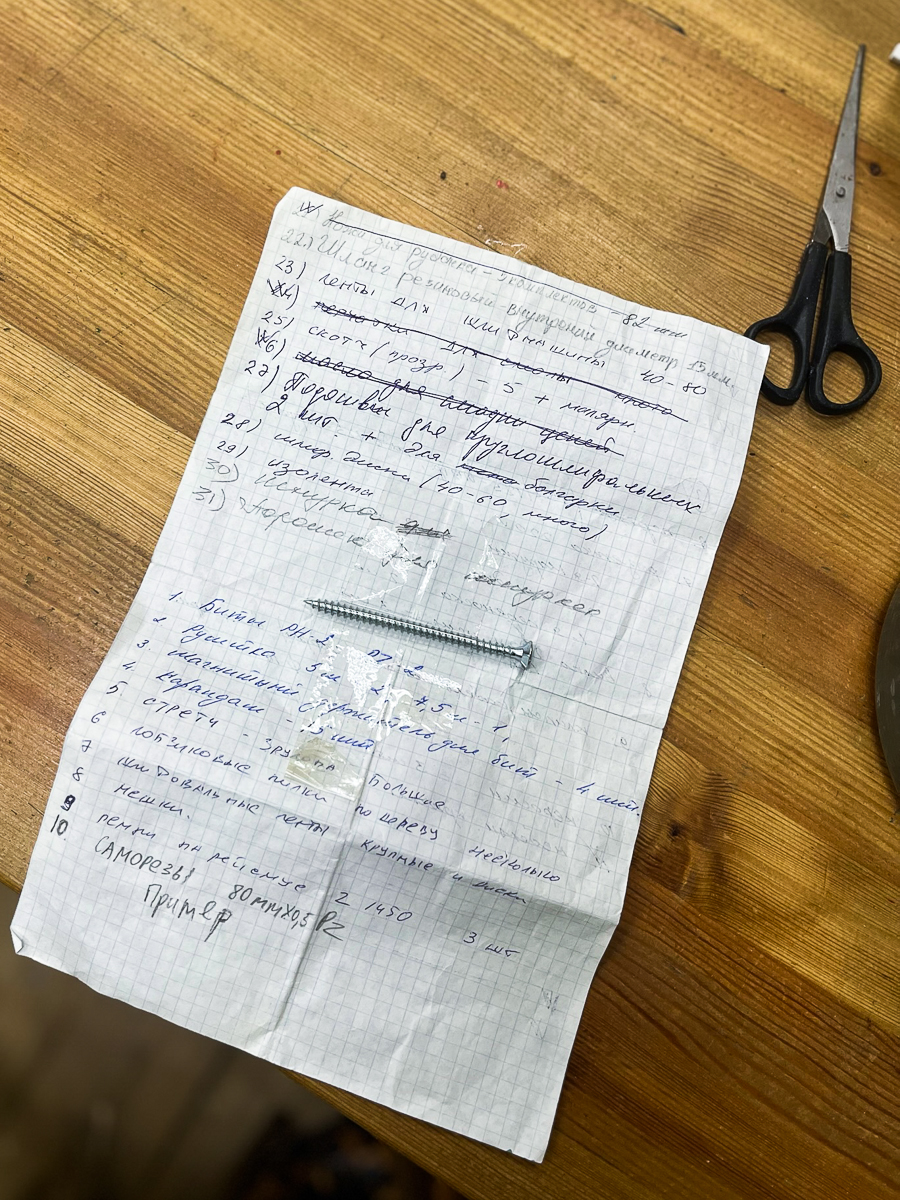 Ножи для рубанка - 3 комплектов - 82 мм
22.) Шланг резиновый внутроний диаметр 15 мм.
23) ленты для шлифмашины 40-80
24) перчатки для смолы
25) скотч (прозр) - 5 + малярн.
26) масло для смазки цепей
27) Подошвы для круглошлифовальных
2 шт. + для болгарки
28) шлиф. диски (40-60, много)
29) изолента
30) Шкурка
31) Порошок для
1. Биты PH-2 PZ-2
2 рулетка 5м - 2, 7,5м - 1,
3 магнитный держатель для бит - 4 шт.
4. карандаш - 15 шт
5 стретч - 3 рулона Большие
6 лобзиковые пилки по дереву несколько
7 шлифовальные ленты крупные и диски
8 мешки.
9 ремни на рейсмус 2 1450 3 шт
10. САМОРЕЗЫ 80ммх0,5 PZ
Пример